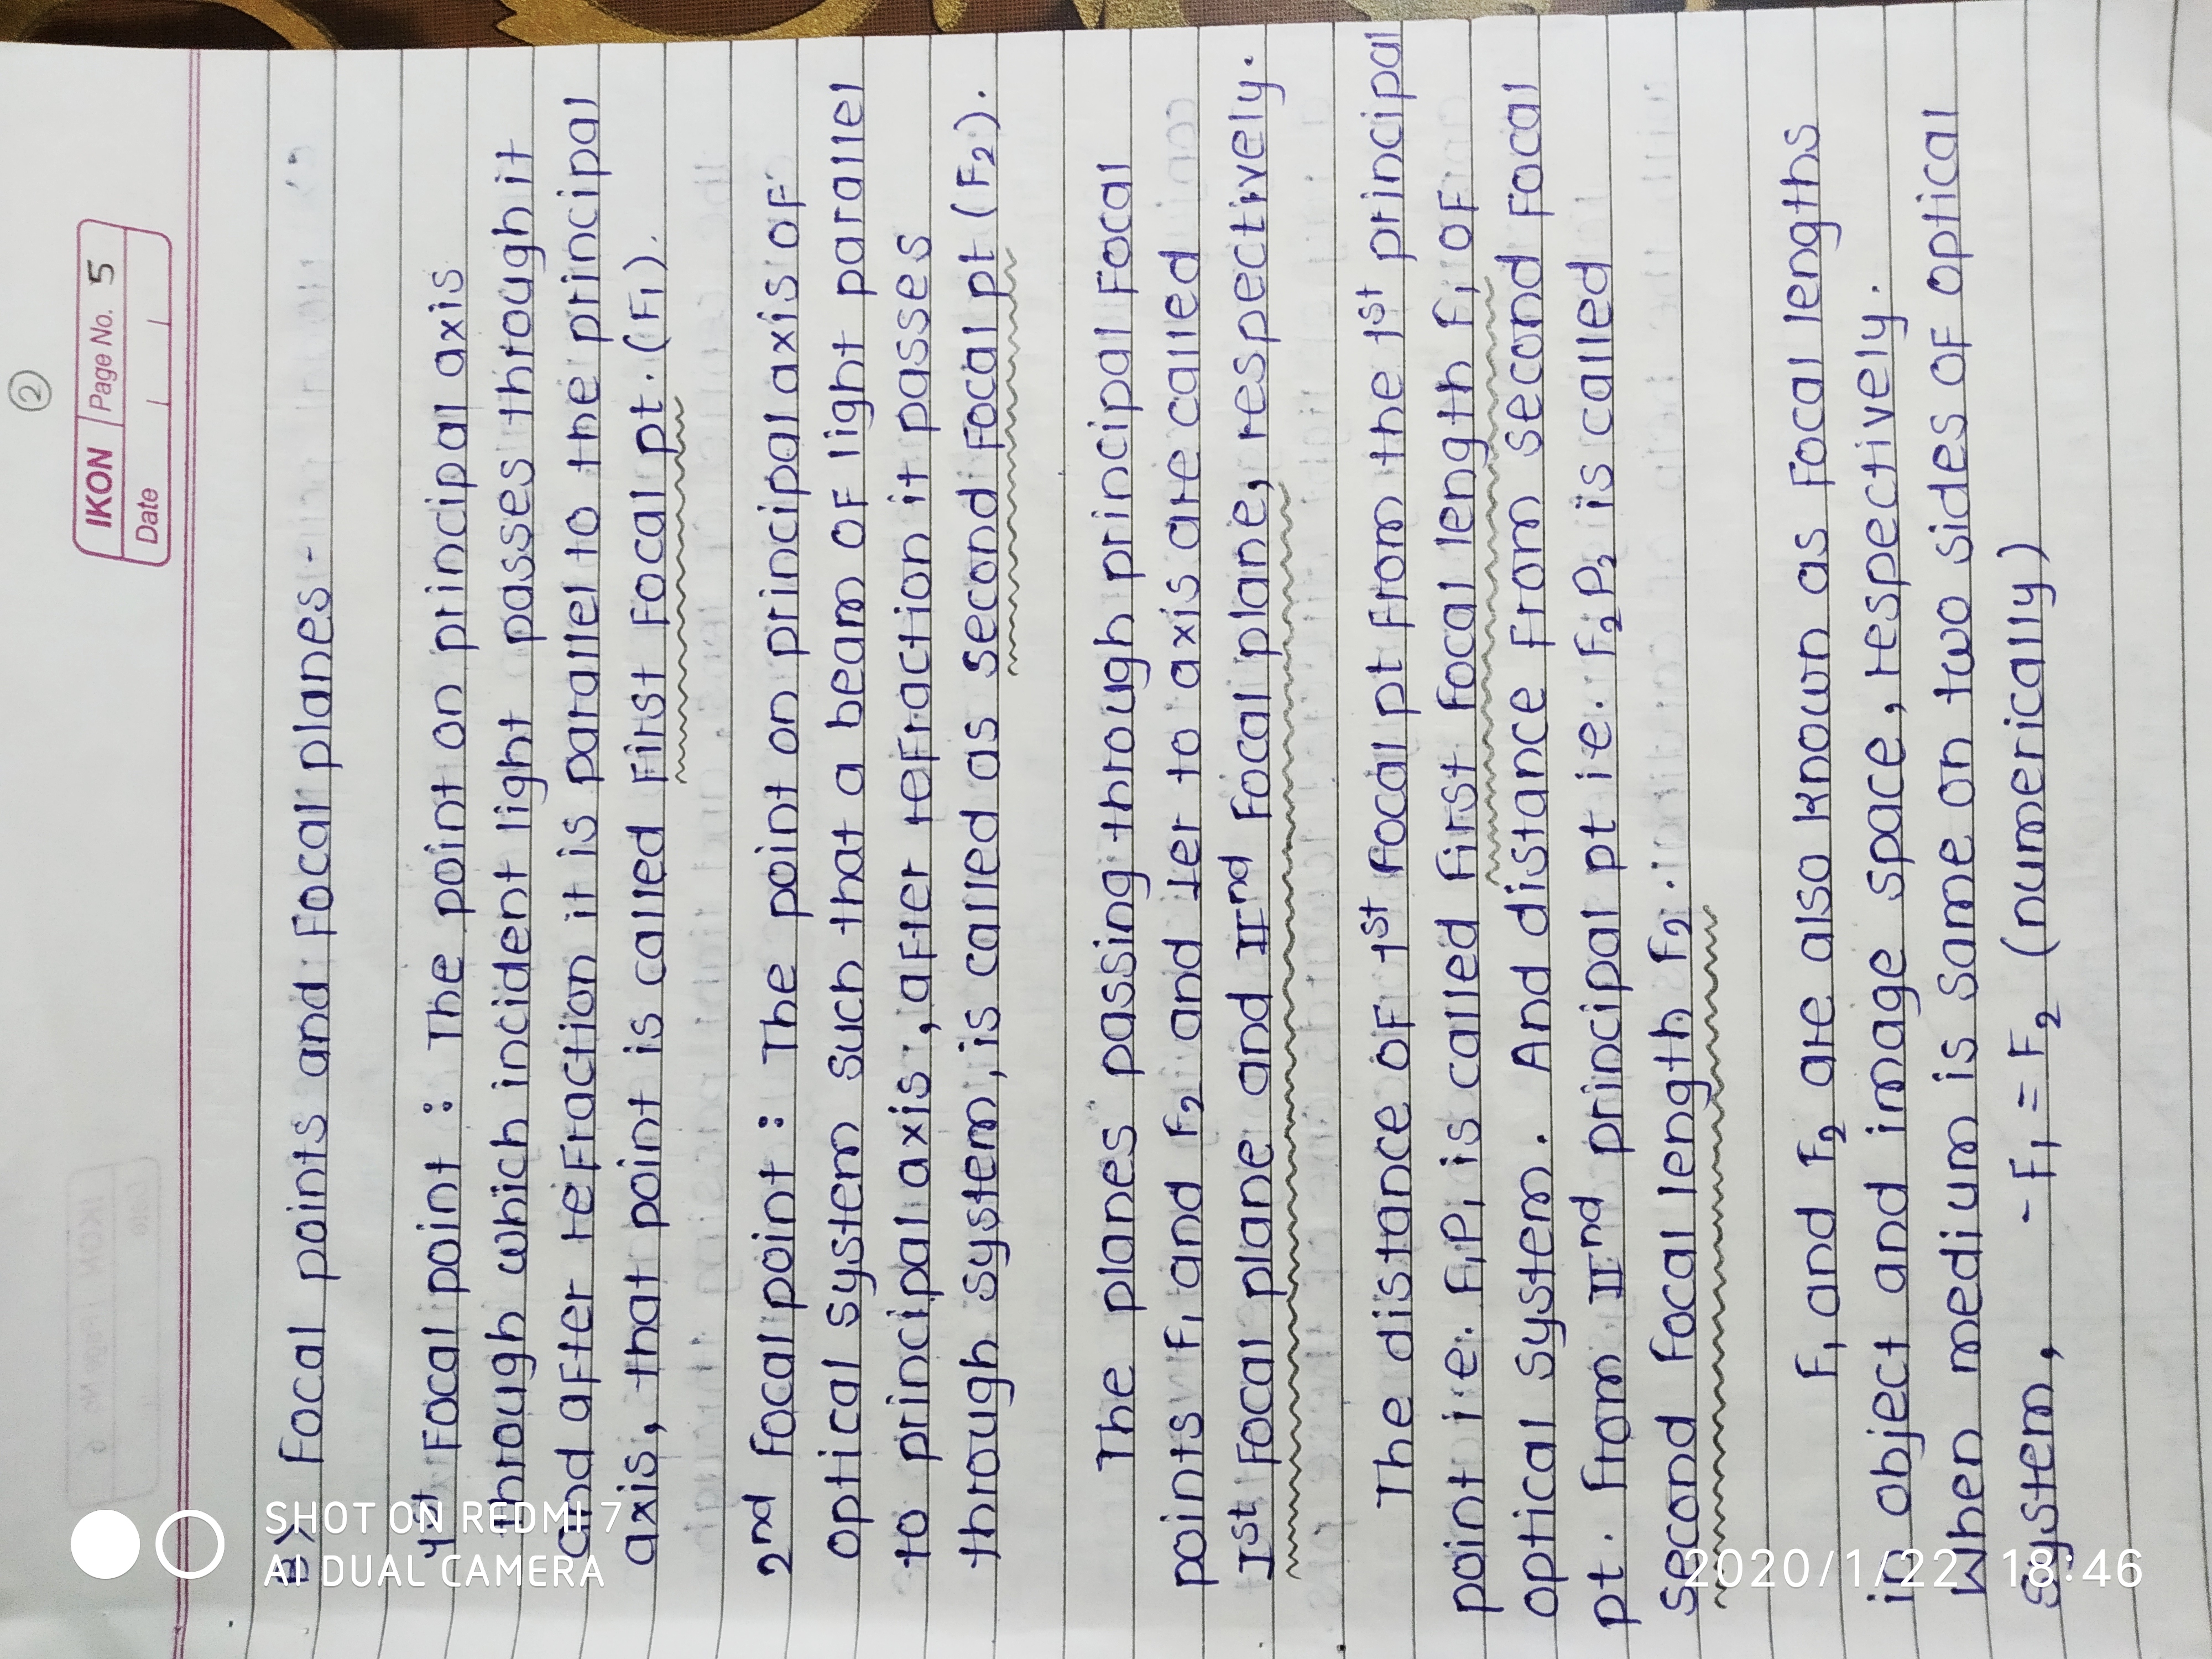 ②
IKON Page No. 5
Date
B> Focal points and Focal planes -
1st Focal point : The point on principal axis
through which incident light passes through it
and after refraction it is parallel to the principal
axis, that point is called First Focal pt. (F1).
2nd Focal point : The point on principal axis of
optical system such that a beam of light parallel
to principal axis, after refraction it passes
through system, is called as second Focal pt (F2).
The planes passing through principal Focal
points F1 and F2 and ⊥er to axis are called
Ist Focal plane and IInd Focal plane, respectively.
The distance of 1st Focal pt from the 1st principal
point i.e. F1P1 is called First Focal length F1 of
optical system. And distance from second Focal
pt. From IInd principal pt ie. F2P2 is called
second Focal length F2.
F1 and F2 are also known as Focal lengths
in object and image space, respectively.
When medium is same on two sides of optical
system, - F1 = F2 (numerically)
SHOT ON REDMI 7
AI DUAL CAMERA
2020/1/22 18:46